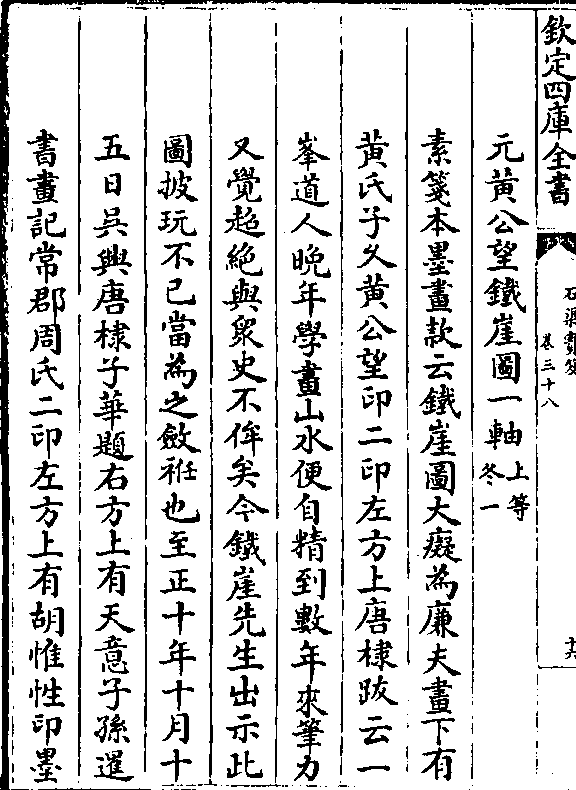 欽定四庫全書
石渠寶笈
卷三十八
十六
元黃公望鐵崖圖一軸上等冬一
素箋本墨畫款云鐵崖圖大癡為廉夫畫下有
黃氏子久黃公望印二印左方上唐棣跋云一
峯道人晚年學畫山水便自精到數年來筆力
又覺超絶與衆史不侔矣今鐵崖先生出示此
圖披玩不已當為之斂衽也至正十年十月十
五日吳興唐棣子華題右方上有天意子孫暹
書畫記常郡周氏二印左方上有胡惟性印墨